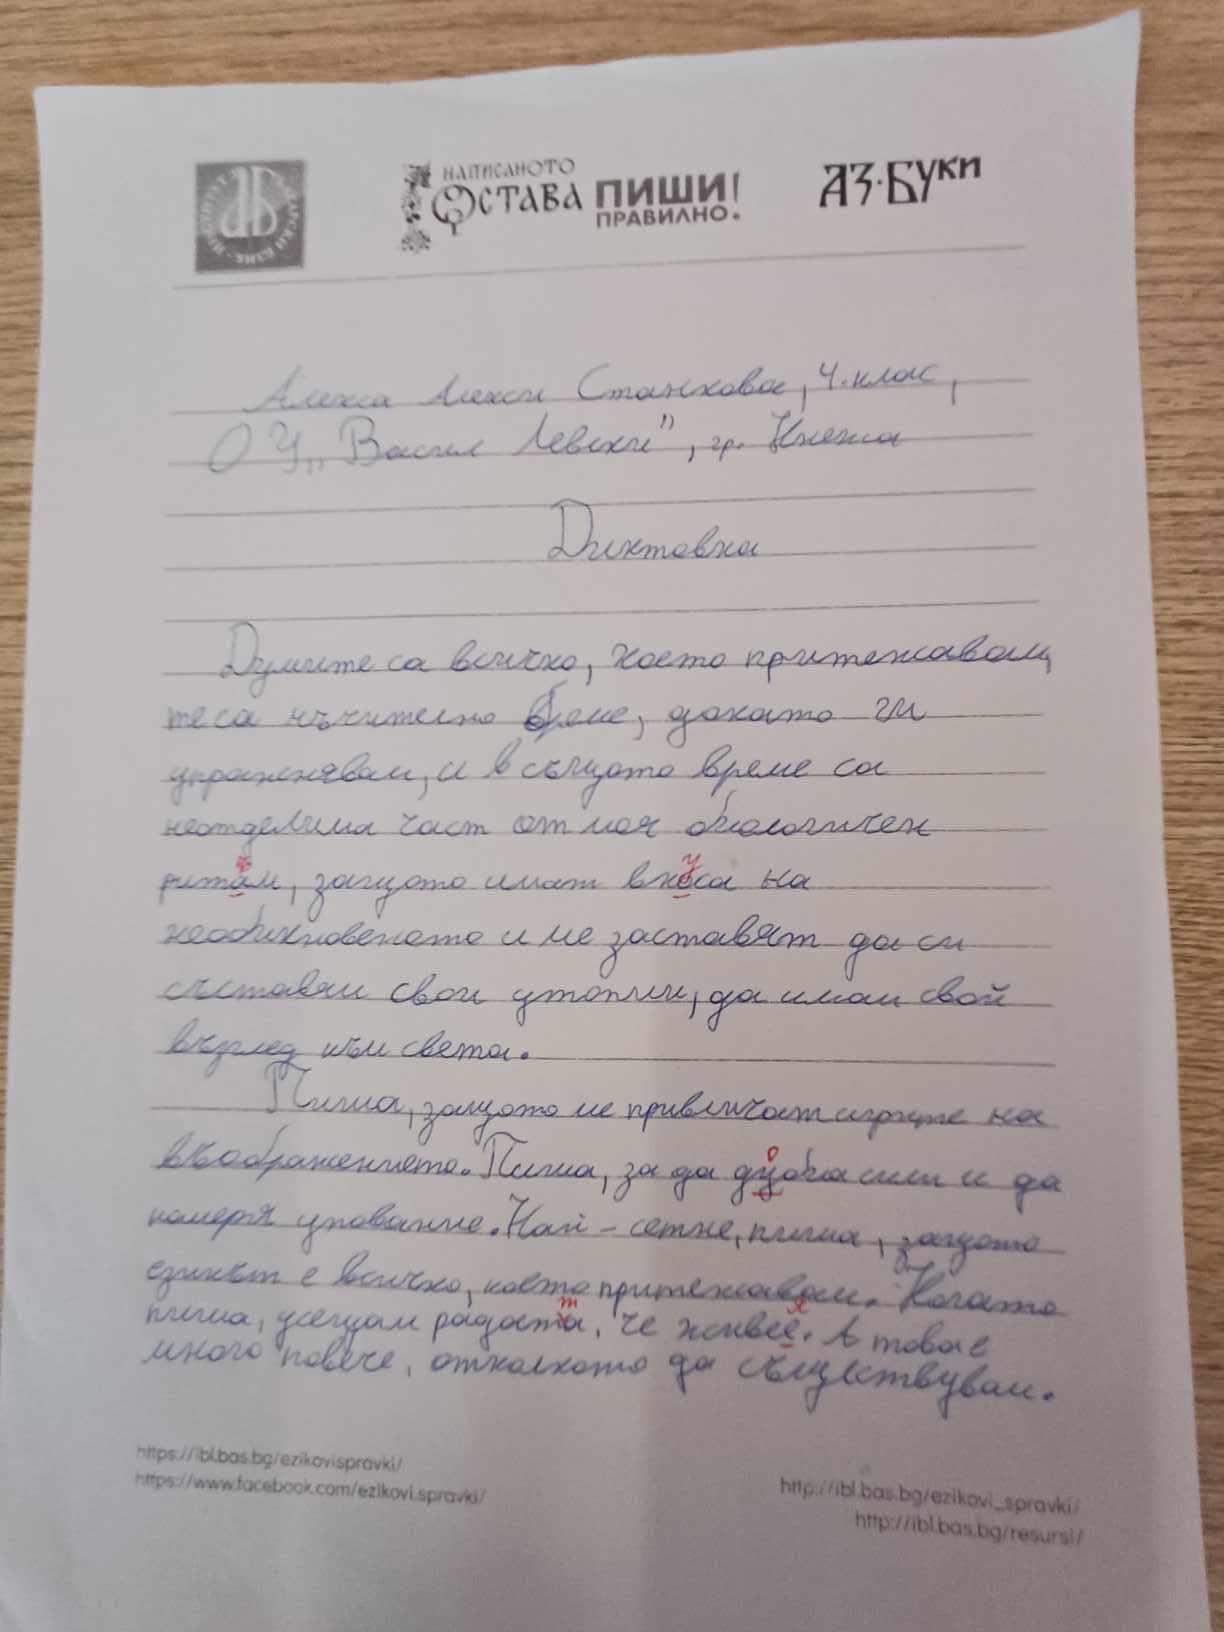 ИНСТИТУТ ЗА БЪЛГАРСКИ ЕЗИК
НАПИСАНОТО
ОСТАВА
ПИШИ
ПРАВИЛНО!
АЗ·БУКИ
Алекса Алекси Станкова, 4. клас,
ОУ „Васил Левски", гр. Кнежа
Диктовка
Думите са всичко, което притежавам,
те са мъчително бреме, докато ги
упражнявам, и в същото време са
неотделима част от моя биологичен
ритам, защото имат вкоса на
необикновеното и ме заставят да си
съставям свои утопии, да имам свой
възглед към света.
Пиша, защото ме привличат игрите на
въображението. Пиша, за да дубия сили и да
намеря упование. Най – сетне, пиша, защото
езикът е всичко, което притежавам. Когато
пиша, усещам радоста, че живеé. А това е
много повече, отколкото да съществувам.
https://ibl.bas.bg/ezikovispravki/
https://www.facebook.com/ezikovi.spravki/
http://ibl.bas.bg/ezikovi_spravki/
http://ibl.bas.bg/resursi/